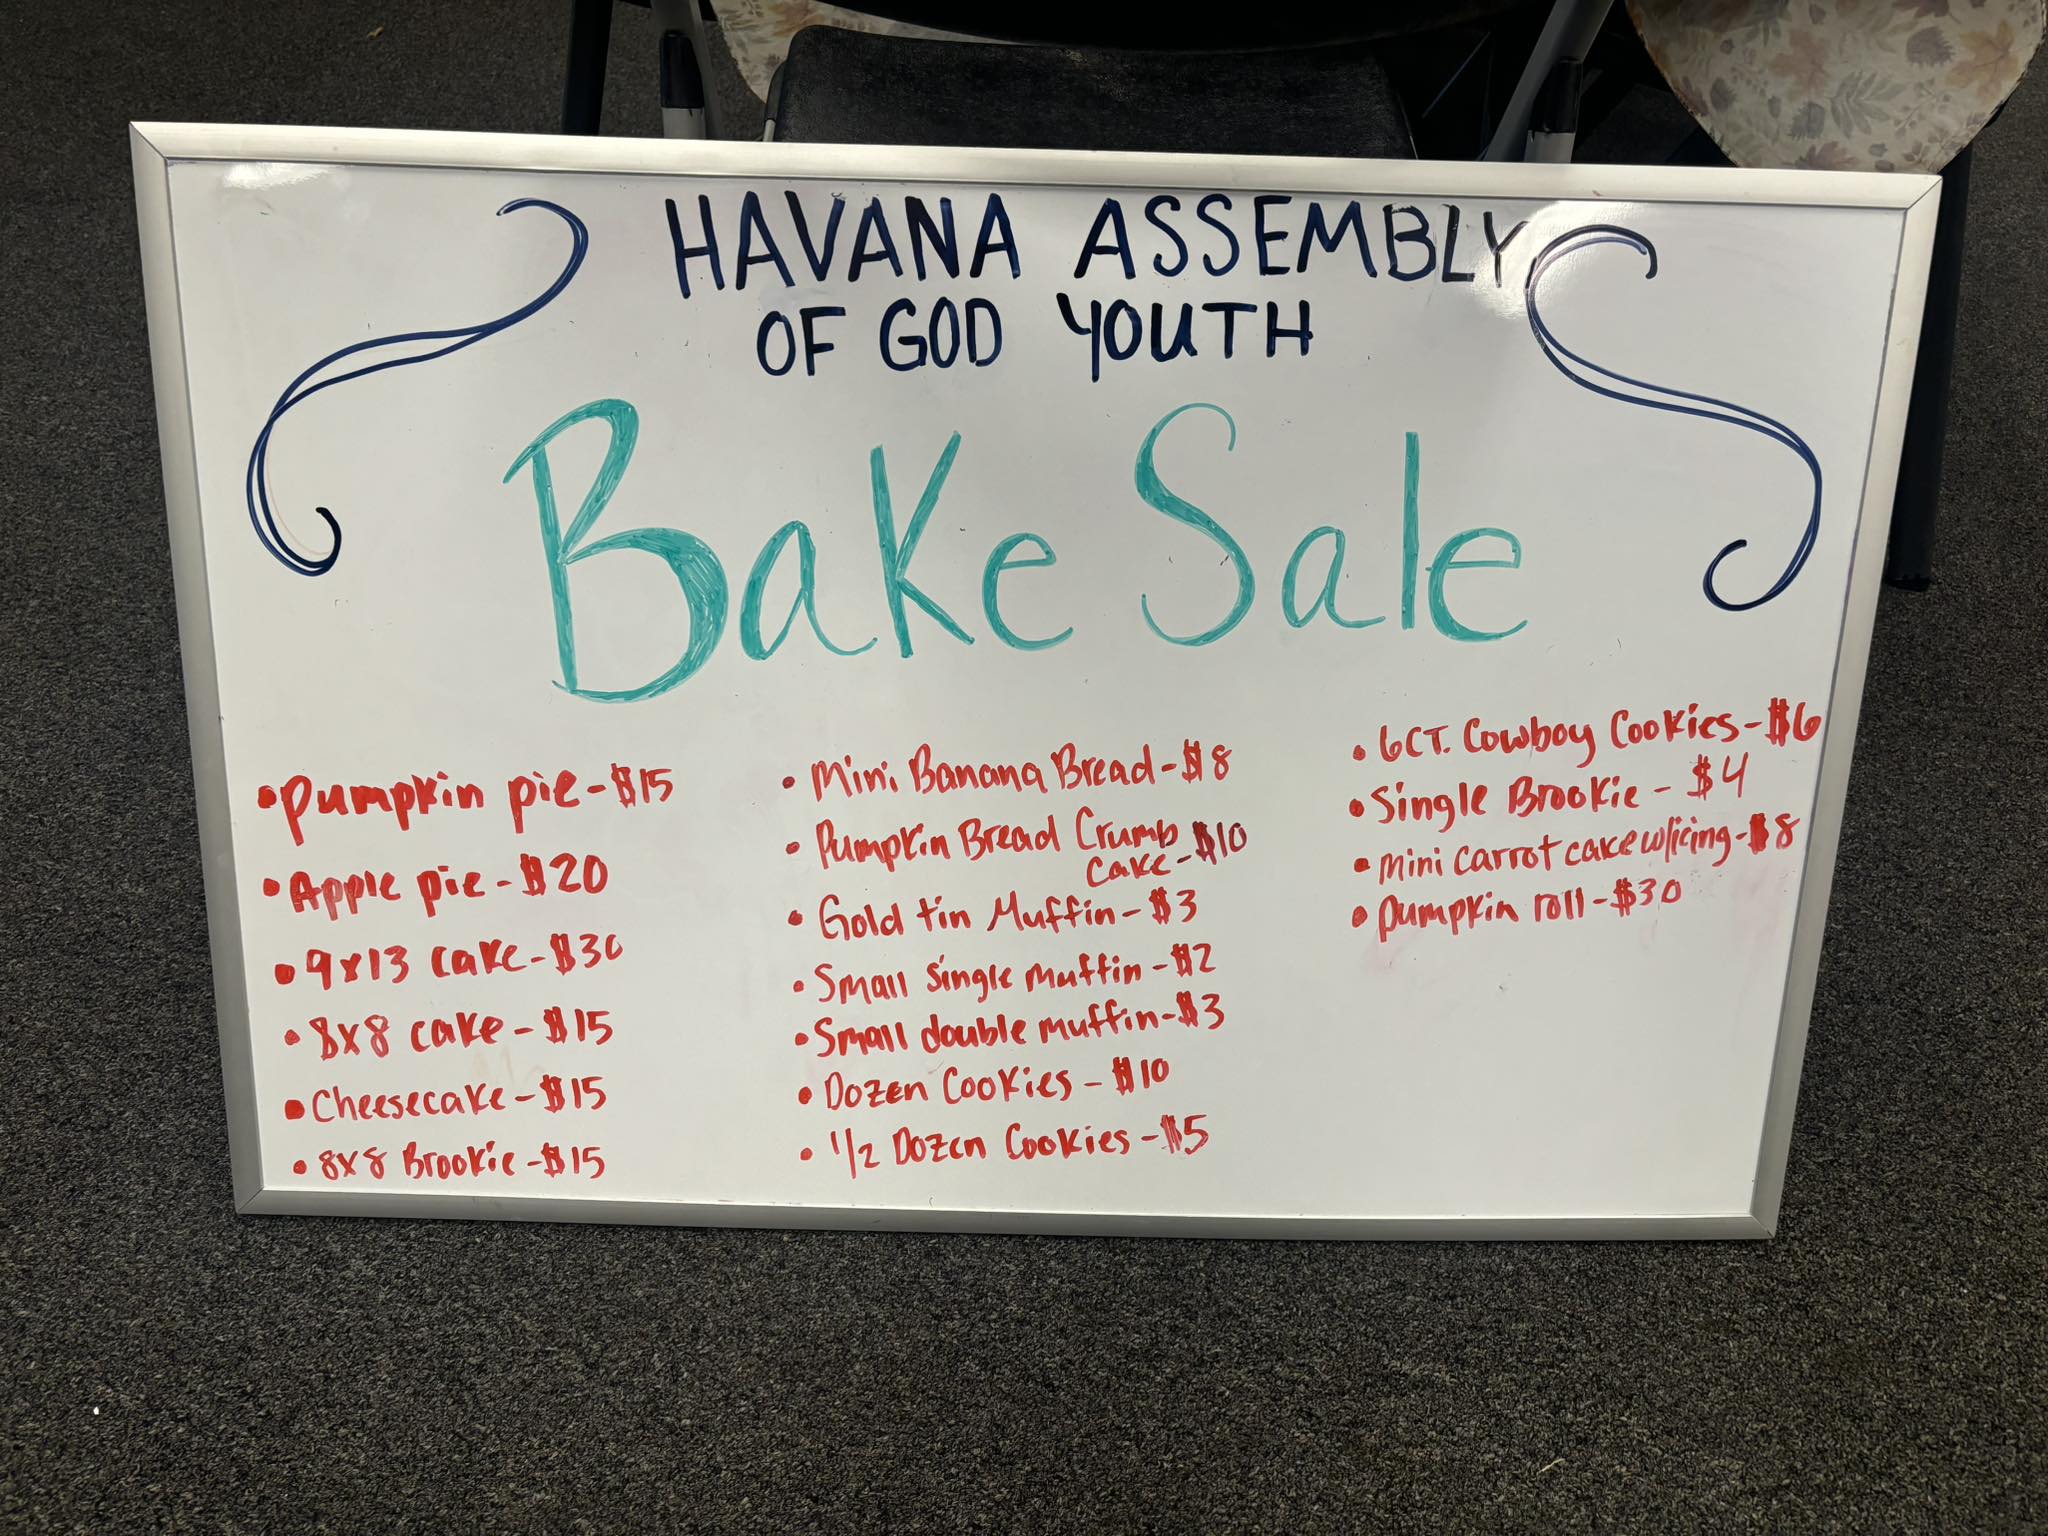 HAVANA ASSEMBLY
OF GOD YOUTH
Bake Sale
• Pumpkin pie - $15
• Apple pie - $20
• 9x13 cake - $30
• 8x8 cake - $15
• Cheesecake - $15
• 8x8 Brookie - $15
• Mini Banana Bread - $8
• Pumpkin Bread Crumb
cake - $10
• Gold tin Muffin - $3
• Small single muffin - $2
• Small double muffin - $3
• Dozen Cookies - $10
• 1/2 Dozen Cookies - $5
• 6CT. Cowboy Cookies - $6
• Single Brookie - $4
• mini carrot cake w/icing - $8
• pumpkin roll - $30